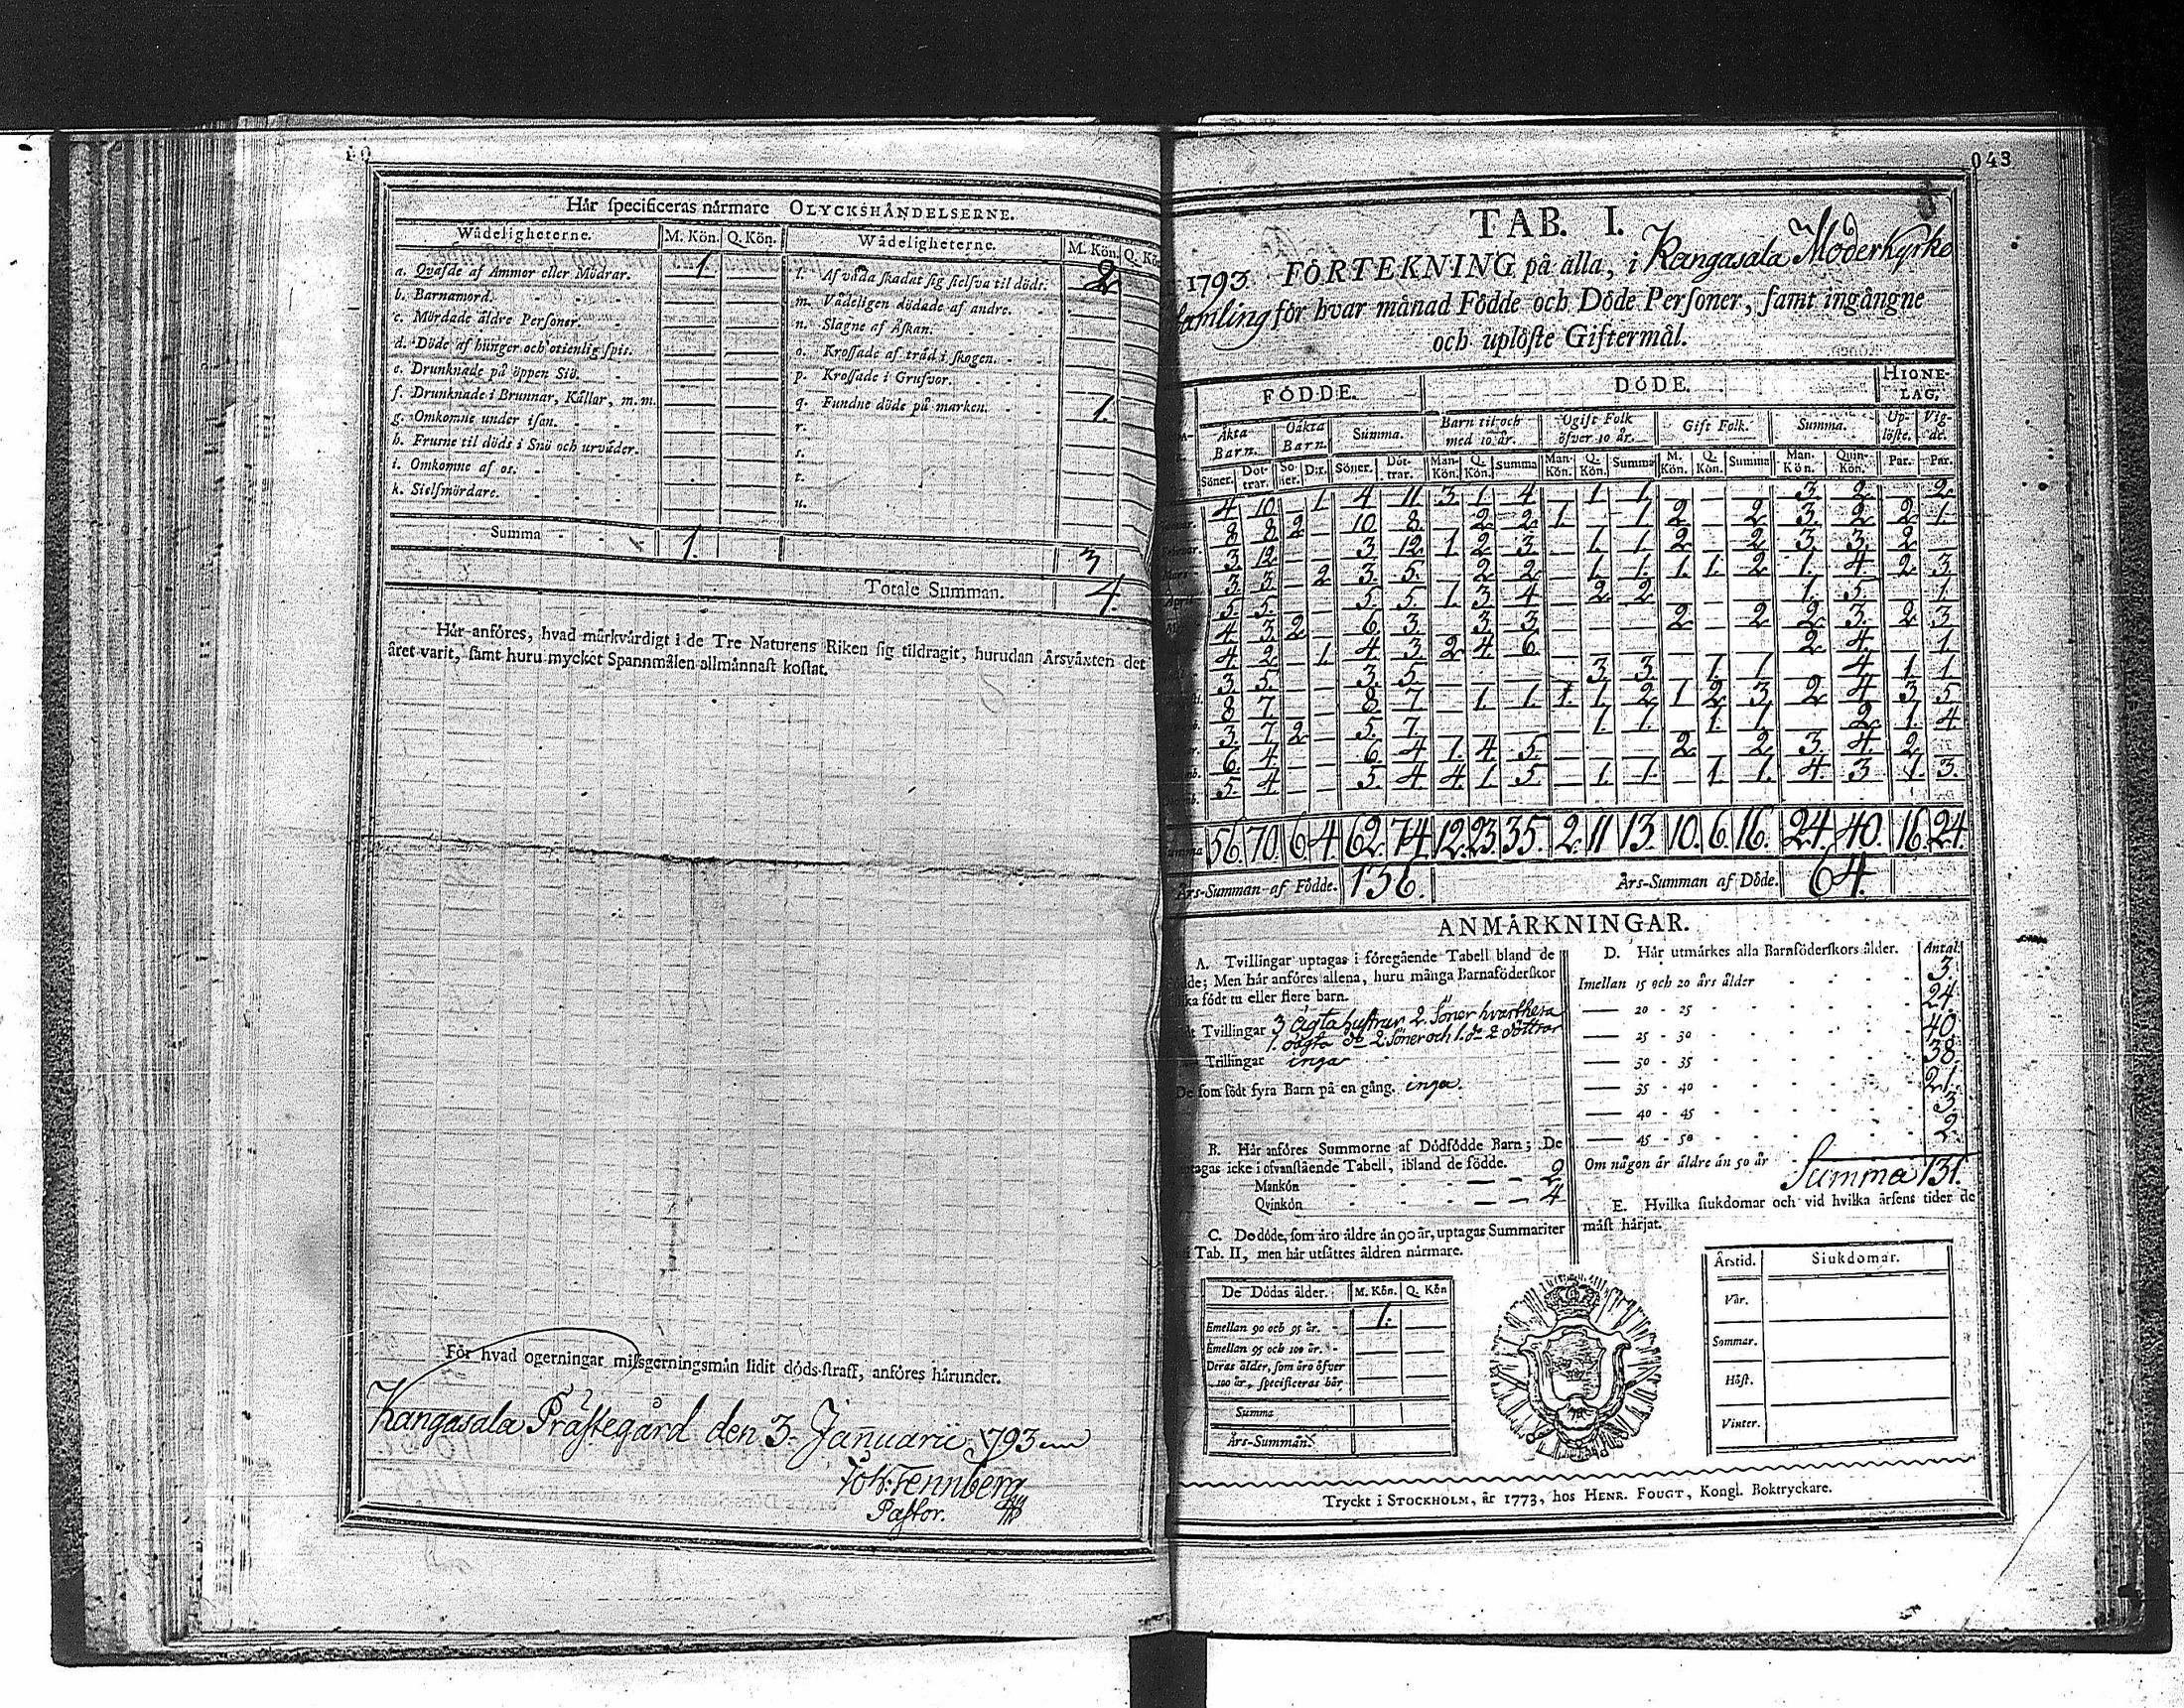 043
Hår specificeras nårmare OLYCKSHÅNDELSERNE.
Wådeligheterne. M. Kön. Q. Kön. Wådeligheterne. M. Kön. Q. Kön
a. Qvafde af Ammor eller Mödrar. 1. — l. Af våda skadat sig sielfva til döds. 2. —
b. Barnamord. — — m. Vådeligen dödade af andre. — —
c. Mördade äldre Personer. — — n. Slagne af Åskan. — —
d. Döde af hunger och otienlig spis. — — o. Krossade af träd i skogen. — —
e. Drunknade på öppen Siö. — — p. Krossade i Grufvor. — —
f. Drunknade i Brunnar, Kållar, m. m. — — q. Fundne döde på marken. 1. —
g. Omkomne under isan. — — r.
h. Frusne til döds i Snö och urvåder. — — s.
i. Omkomne af os. — — t.
k. Sielfmördare. — — u.
Summa 1. 3
Totale Summan. 4.
Hår anföres, hvad mårkvårdigt i de Tre Naturens Riken sig tildragit, hurudan Årsväxten det
året varit, samt huru mycket Spannmålen allmånnast kostat.
För hvad ogerningar missgerningsmån lidit döds-straff, anföres hårunder.
Kangasala Prästegård den 3. Januarii 1793
Joh: Tennberg
Pastor.
TAB. I.
1793. FÖRTEKNING på alla, i Kangasala Moderkyrko
samling för hvar månad Födde och Döde Personer, samt ingångne
och uplöste Giftermål.
FÖDDE. DÖDE. HIONE-LAG.
Äkta Barn. Oäkta Barn. Summa. Barn til och med 10 år. Ogift Folk öfver 10 år. Gift Folk. Summa. Up-löste. Vig-de.
Söner. Döt-trar. Sö-ner. Dːr. Söner. Döt-trar. Man-Kön. Q. Kön. Summa Man-Kön. Q. Kön. Summa M. Kön. Q. Kön. Summa Man-Kön. Quin-Kön. Par. Par.
4 10 — 1. 4 11 3. 1. 4 — 1. 1. — — — 3. 2. — 2.
8 8 2 — 10 8 — 2 2 1. — 1. 2 — 2. 3. 2 2 1.
3 12 — — 3 12 1. 2 3 — 1. 1 2 — 2 3 3. 2 —
3 3 — 2 3. 5. — 2 2 — 1. 1. 1. 1. 2 1. 4 2 3
5 5 — — 5 5. 1. 3 4 — 2 2 — — — 1. 5. — 1.
4 3 2 — 6 3 — 3 3 — — — 2 — 2 2 3. 2 3
4 2 — 1. 4 3 2 4 6 — — — — — — 2 4. — 1.
3 5. — — 3. 5. — — — — 3. 3. — 1. 1. — 4 1. 1
8 7 — — 8 7 — 1. 1. 1. 1. 2 1 2 3 2 4 3 5
3 7 2 — 5. 7. — — — — 1. 1. — 1. 1. — 2. 1. 4
6 4 — — 6 4 1. 4 5. — — — 2. — 2 3. 4. 2 —
5. 4 — — 5. 4 4 1 5 — 1. 1. — 1. 1. 4. 3 1. 3.
56. 70. 6 4 62. 74. 12. 23. 35. 2. 11 13. 10. 6. 16. 24. 40. 16. 24.
Års-Summan af Födde. 136. Års-Summan af Döde. 64.
ANMÅRKNINGAR.
A. Tvillingar uptagas i föregående Tabell bland de
Födde; Men hår anföres allena, huru många Barnaföderskor
födt tu eller flere barn.
Tvillingar 3 ägta hustrur 2. Söner hvarthera
1. oägta do 2. Söner och 1. do 2 döttrar
Trillingar inga
De som födt fyra Barn på en gång. inga.
B. Hår anföres Summorne af Dödfödde Barn; De
uptagas icke i ofvanstående Tabell, ibland de födde.
Mankön — — 2
Qvinkön — — 4
C. De döde, som äro äldre än 90 år, uptagas Summariter
Tab. II, men hår utsåttes åldren nårmare.
De Dödas ålder. M. Kön. Q. Kön
Emellan 90 och 95 år. 1. —
Emellan 95 och 100 år. — —
Deras ålder, som äro öfver
100 år, specificeras hår — —
Summa
Års-Summan.
D. Hår utmårkes alla Barnföderskors ålder. Antal
Imellan 15 och 20 års ålder 3.
— 20 - 25 24
— 25 - 30 40
— 30 - 35 38
— 35 - 40 21.
— 40 - 45 3
— 45 - 50 2.
Om någon är äldre än 50 år
Summa 131.
E. Hvilka siukdomar och vid hvilka årsens tider de
måst hårjat.
Årstid. Siukdomar.
Vår.
Sommar.
Höst.
Vinter.
Tryckt i STOCKHOLM, år 1773, hos HENR. FOUGT, Kongl. Boktryckare.